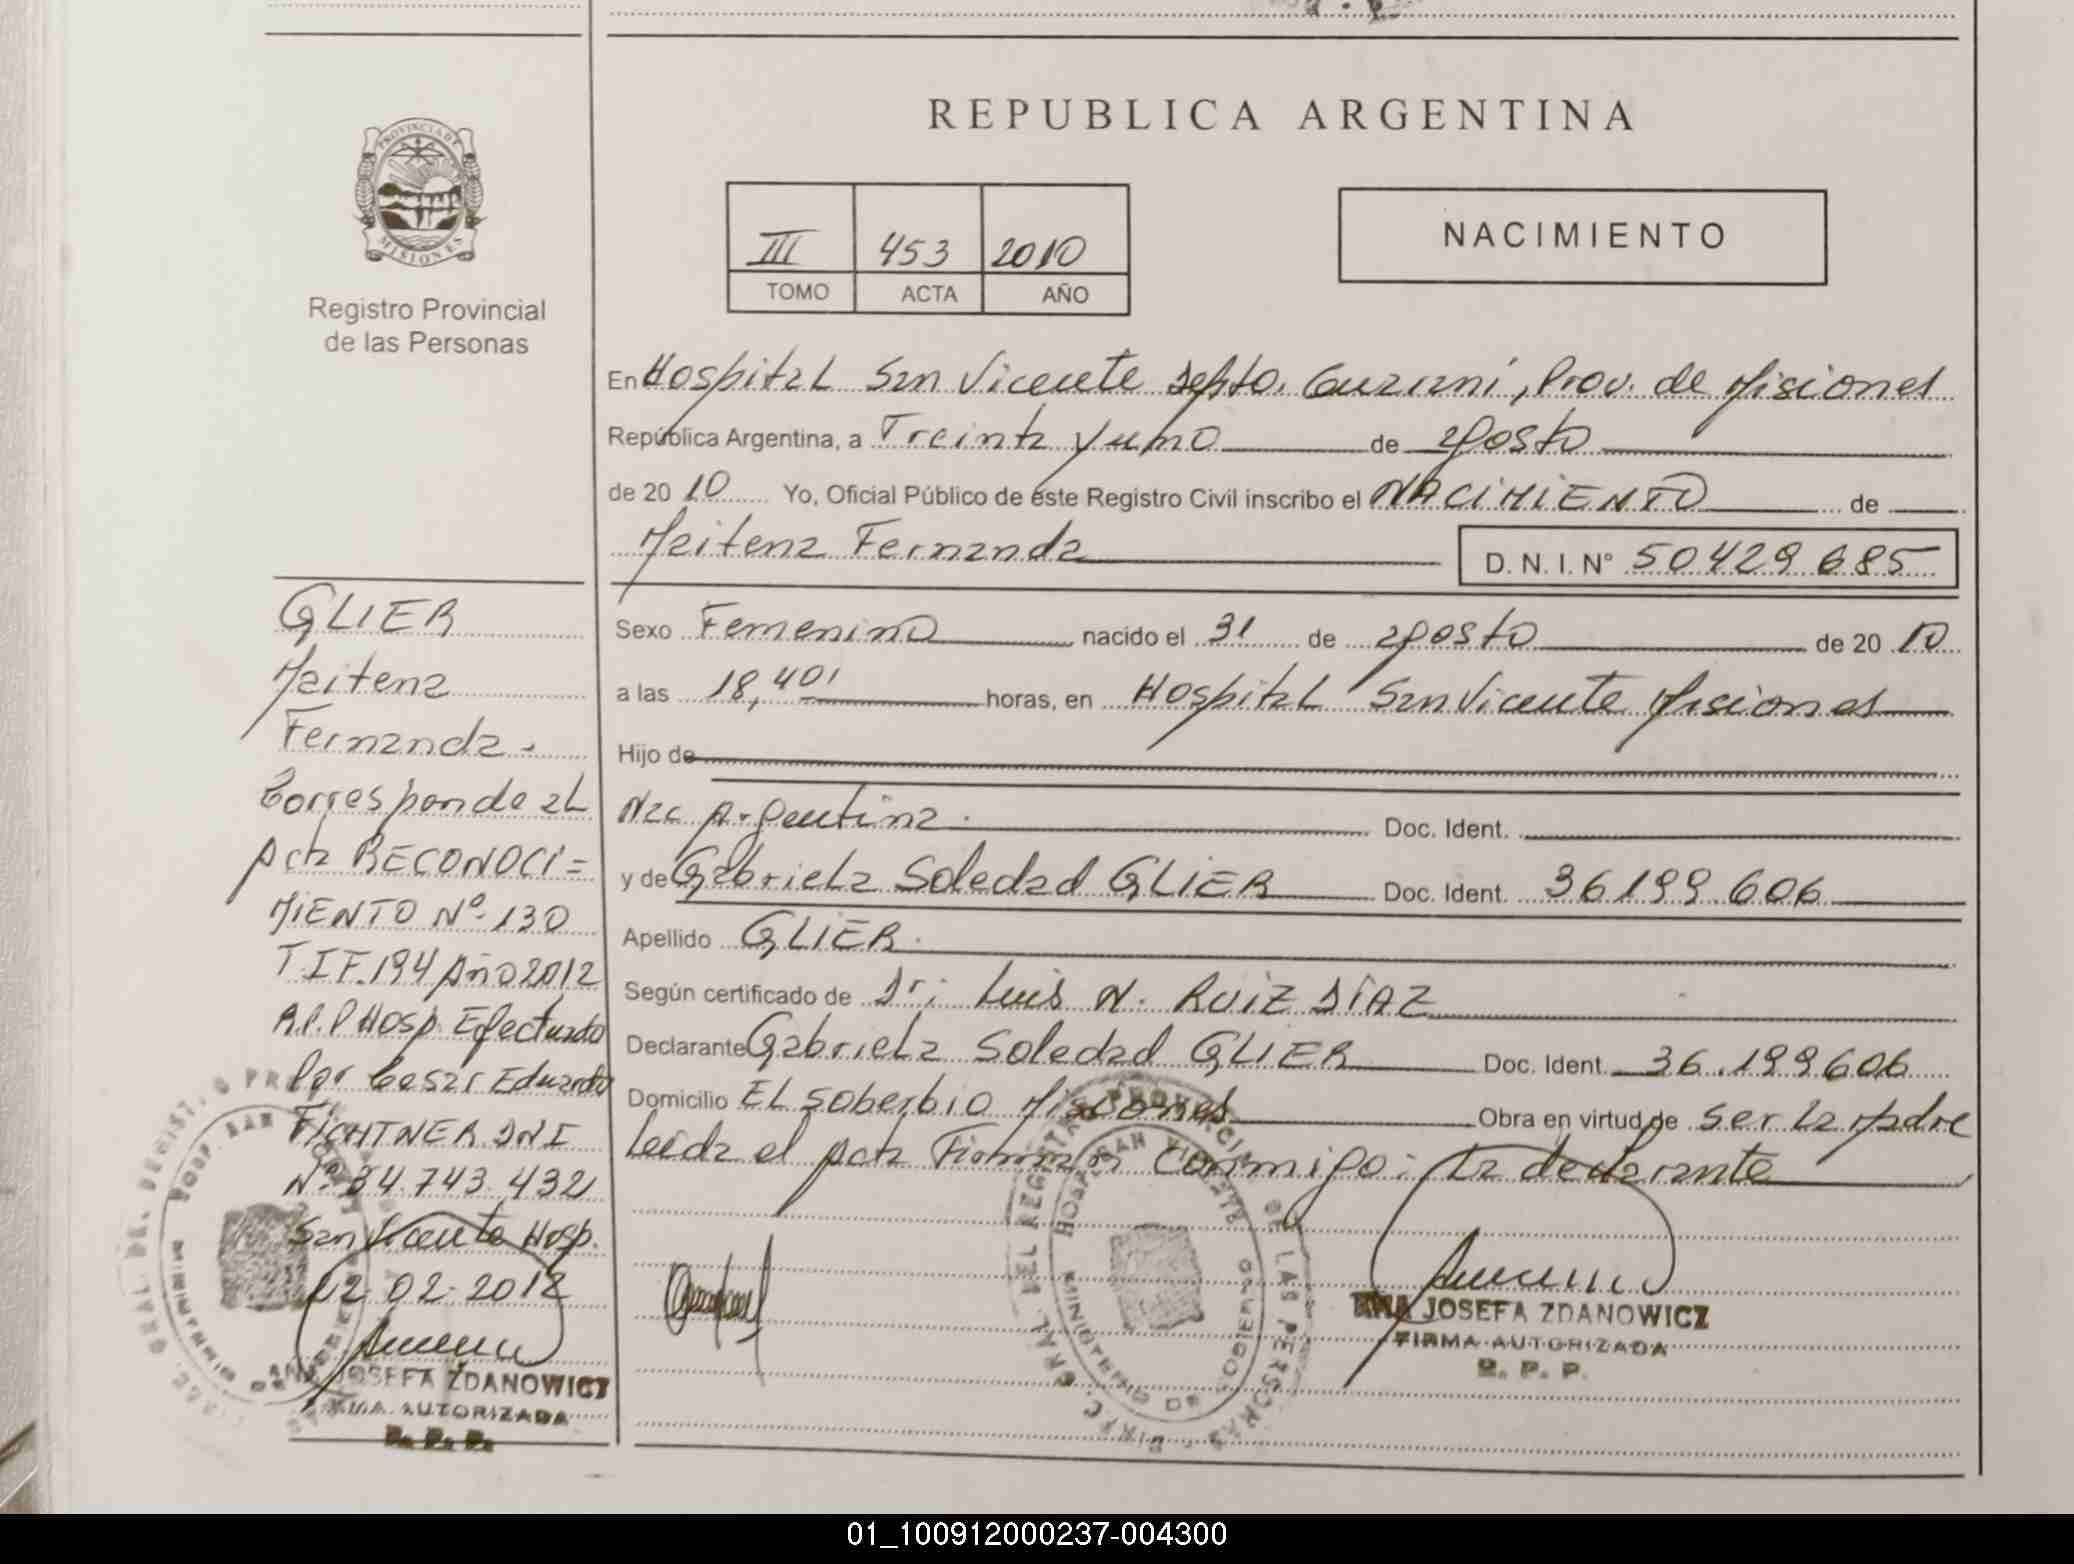 REPUBLICA ARGENTINA
PROVINCIA DE
MISIONES
Registro Provincial
de las Personas
III 453 2010
TOMO ACTA AÑO
NACIMIENTO
En Hospital San Vicente Depto. Guarani, Prov. de Misiones
República Argentina, a Treinta y uno de agosto
de 20 10 Yo, Oficial Público de este Registro Civil inscribo el NACIMIENTO de
Maitena Fernanda
D. N. I. Nº 50429685
Sexo Femenino nacido el 31 de agosto de 20 10
a las 18,40' horas, en Hospital San Vicente Misiones
Hijo de
Nac Argentina. Doc. Ident.
y de Gabriela Soledad GLIER Doc. Ident. 36199.606
Apellido GLIER.
Según certificado de Dr: Luis N. RUIZ DIAZ
Declarante Gabriela Soledad GLIER Doc. Ident. 36.199606
Domicilio EL Soberbio Misiones Obra en virtud de ser la Madre
Leida el Acta Firman conmigo: La declarante
GLIER
Maitena
Fernanda.
Corresponde al
Acta RECONOCI=
MIENTO Nº 130
T.I F.194 Año 2012
R.P.P Hosp. Efectuado
Por Cesar Eduardo
FICHTNER DNI
Nº 34.743.432
San Vicente Hosp.
02-02-2012
ANA JOSEFA ZDANOWICZ
FIRMA AUTORIZADA
R. P. P.
ANA JOSEFA ZDANOWICZ
FIRMA AUTORIZADA
R. P. P.
01_100912000237-004300